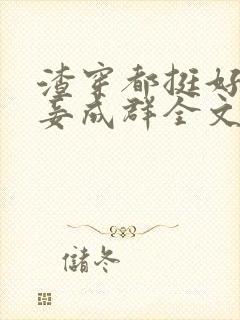 渣穿都挺好
妾成群全文
儲冬